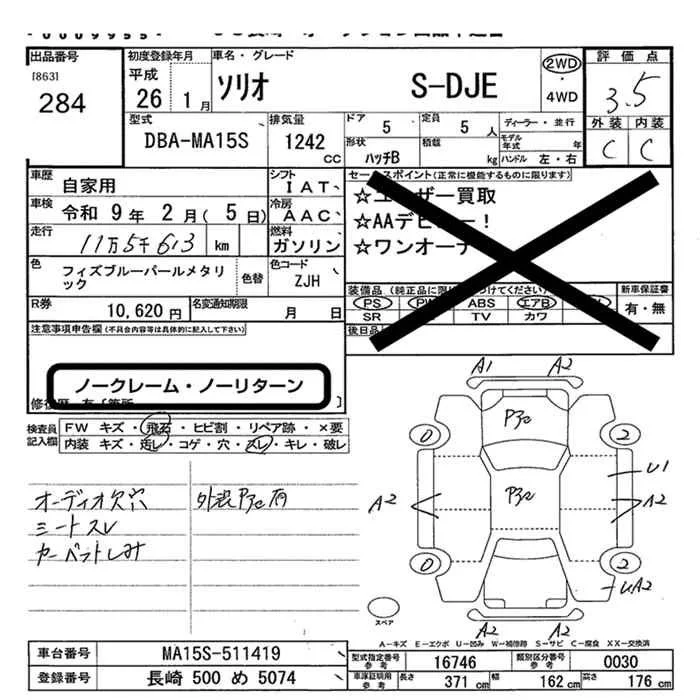 出品番号
[863]
284
初度登録年月
平成
26 1月
車名・グレード
ソリオ S-DJE
2WD
・
4WD
評価点
3.5
外装 内装
C C
型式
DBA-MA15S
排気量
1242
cc
ドア 5
定員 5 人
形状
ハッチB
積載
kg
ディーラー・並行
モデル年式 年
ハンドル 左・右
車歴 自家用
シフト
IAT
車検 令和 9年 2月( 5日)
冷房
AAC
走行
11万5千613 km
燃料
ガソリン
色
フィズブルーパールメタリック
色替
色コード
ZJH
R券
10,620円
名変通知期限
月 日
セールスポイント(正常に機能するものに限ります)
☆ユーザー買取
☆AAデビュー!
☆ワンオーナ
装備品
PS ABS エアB
SR TV カワ
新車保証書
有・無
後日品
注意事項申告欄(不具合内容等は具体的に記入して下さい)
ノークレーム・ノーリターン
検査員記入欄
FW キズ・飛石・ヒビ割・リペア跡・×要
内装 キズ・汚レ・コゲ・穴・スレ・キレ・破レ
オーディオ欠穴
シートスレ
カーペットしみ
外装Pアc有
A1 A2
Pアc
0 2
Pアc
U1
A2 A2
0 2
UA2
A2 A2
スペア
A-キズ E-エクボ U-凹み W-補修跡 S-サビ C-腐食 XX-交換済
車台番号 MA15S-511419
登録番号 長崎 500 め 5074
型式指定番号参考 16746
類別区分番号参考 0030
車庫証明用参考 長さ 371 cm 幅 162 cm 高さ 176 cm